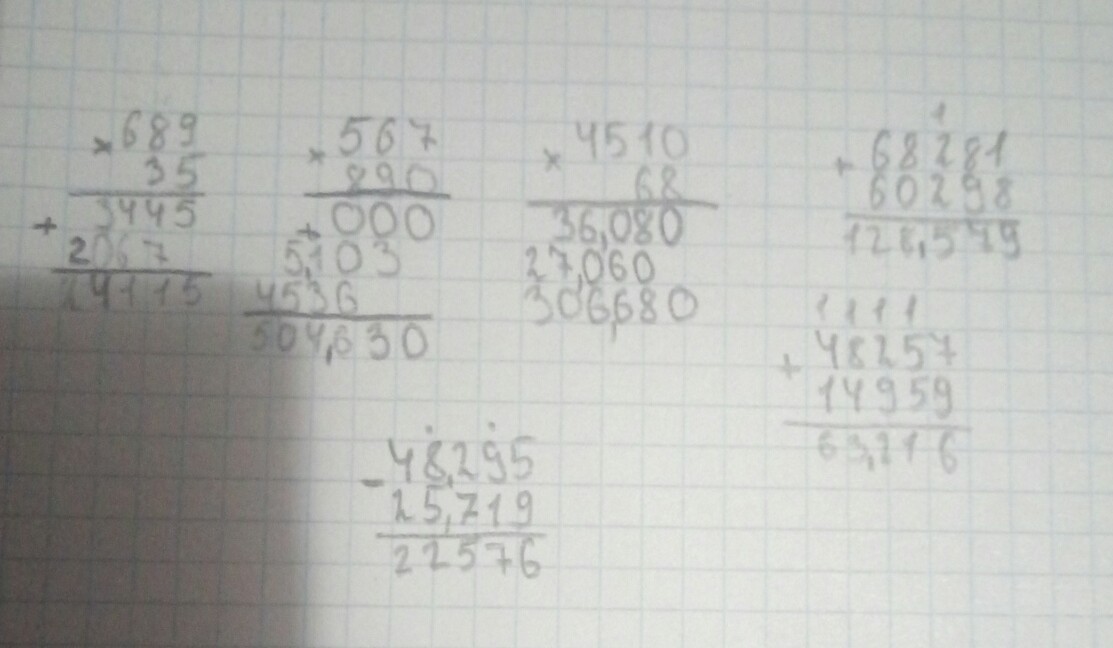 × 689
35
+ 3445
2067
24115
× 567
890
+ 000
5,103
4536
504,630
× 4510
68
36,080
27,060
306,680
1
+ 68281
60298
128,579
1 1 1 1
+ 48257
14959
63,216
- 48,295
25,719
22576